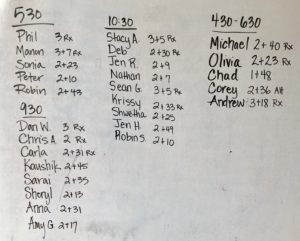 530
Phil 3 Rx
Manon 3+7 Rx
Sonia 2+23
Peter 2+10
Robin 2+43
930
Dan W. 3 Rx
Chris A 2 Rx
Carla 2+31 Rx
Kaushik 2+45
Sarai 2+35
Sheryl 2+13
Anna 2+31
Amy G 2+17
10:30
Stacy A 3+5 Rx
Deb 2+30 Rx
Jen R. 2+9
Nathan 2+7
Sean G. 3+5 Rx
Krissy 2+33 Rx
Shwetha 2+25
Jen H 2+49
Robin S. 2+10
430-630
Michael 2+40 Rx
Olivia 2+23 Rx
Chad 1+48
Corey 2+36 Alt
Andrew 3+18 Rx